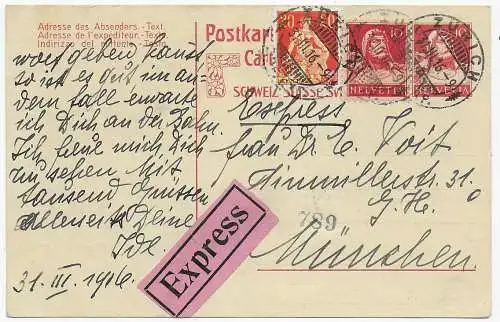 Adresse des Absenders. - Text.
Adresse de l'expéditeur. - Texte.
Indirizzo del mittente. - Testo.
wort geben kannst
so ist es gut, im an-
dern fall erwarte
ich Dich an der Bahn.
Ich freue mich Dich
zu sehen. Mit
tausend Grüssen
allerseits Deine
Ide
31. III. 1916
Postkart
Cart
SCHWEIZ SUISSE SV
HELVETIA
10
HELVETIA
10
ZÜRICH
Express
Frau Dr. E. Voit
Ainmillerstr. 31.
G. H.
789
München
Express